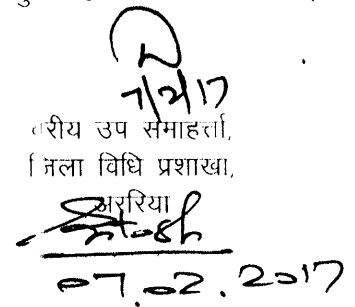 7/2/17
वरीय उप समाहर्त्ता,
जिला विधि प्रशाखा,
अररिया
07.02.2017